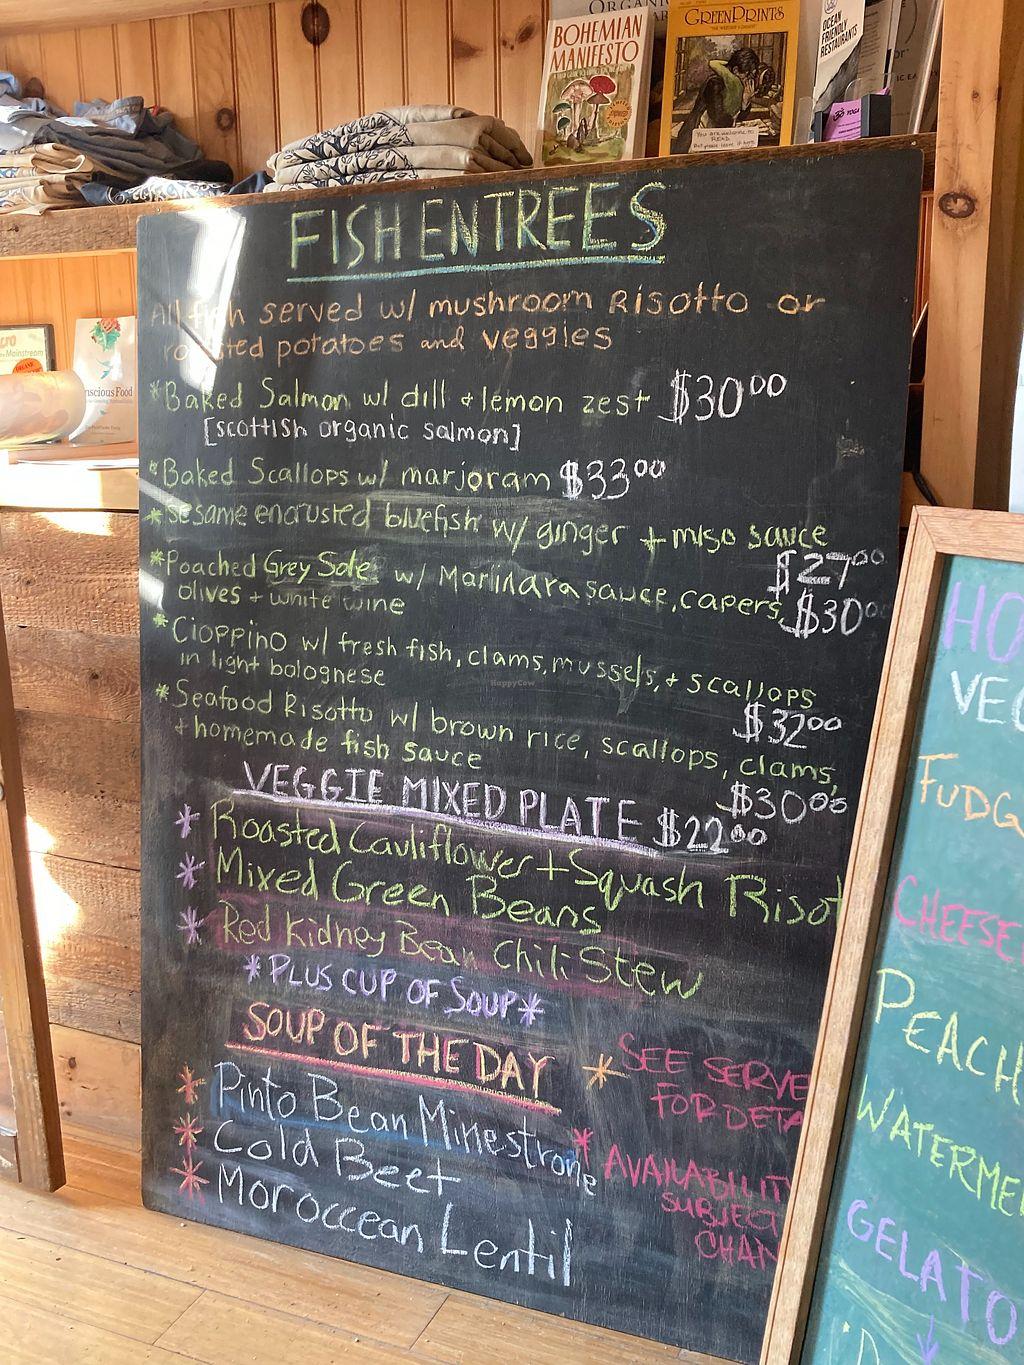 ORGANIC
BOHEMIAN
MANIFESTO
GREENPRINTS
OCEAN
FRIENDLY
RESTAURANTS
YOGA
You are welcome to
READ
FISH ENTREES
All fish served w/ mushroom Risotto or
roasted potatoes and veggies
*Baked Salmon w/ dill + lemon zest $30⁰⁰
[scottish organic salmon]
*Baked Scallops w/ marjoram $33⁰⁰
*sesame encrusted bluefish w/ ginger + miso sauce
$27⁰⁰
*Poached Grey Sole w/ Marinara sauce, capers,
olives + white wine $30⁰⁰
*Cioppino w/ fresh fish, clams, mussels, + scallops
in light bolognese $32⁰⁰
*Seafood Risotto w/ brown rice, scallops, clams,
+ homemade fish sauce $30⁰⁰
VEGGIE MIXED PLATE $22⁰⁰
* Roasted Cauliflower + Squash Risot
* Mixed Green Beans
* Red Kidney Bean Chili Stew
*PLUS CUP OF SOUP*
SOUP OF THE DAY
* Pinto Bean Minestrone
* Cold Beet
* Moroccan Lentil
* SEE SERVE
FOR DETA
* AVAILABILIT
SUBJECT
CHAN
HO
VEG
FUDG
CHEESE
PEACH
WATERME
GELATO
Mainstream
nscious Food
HappyCow